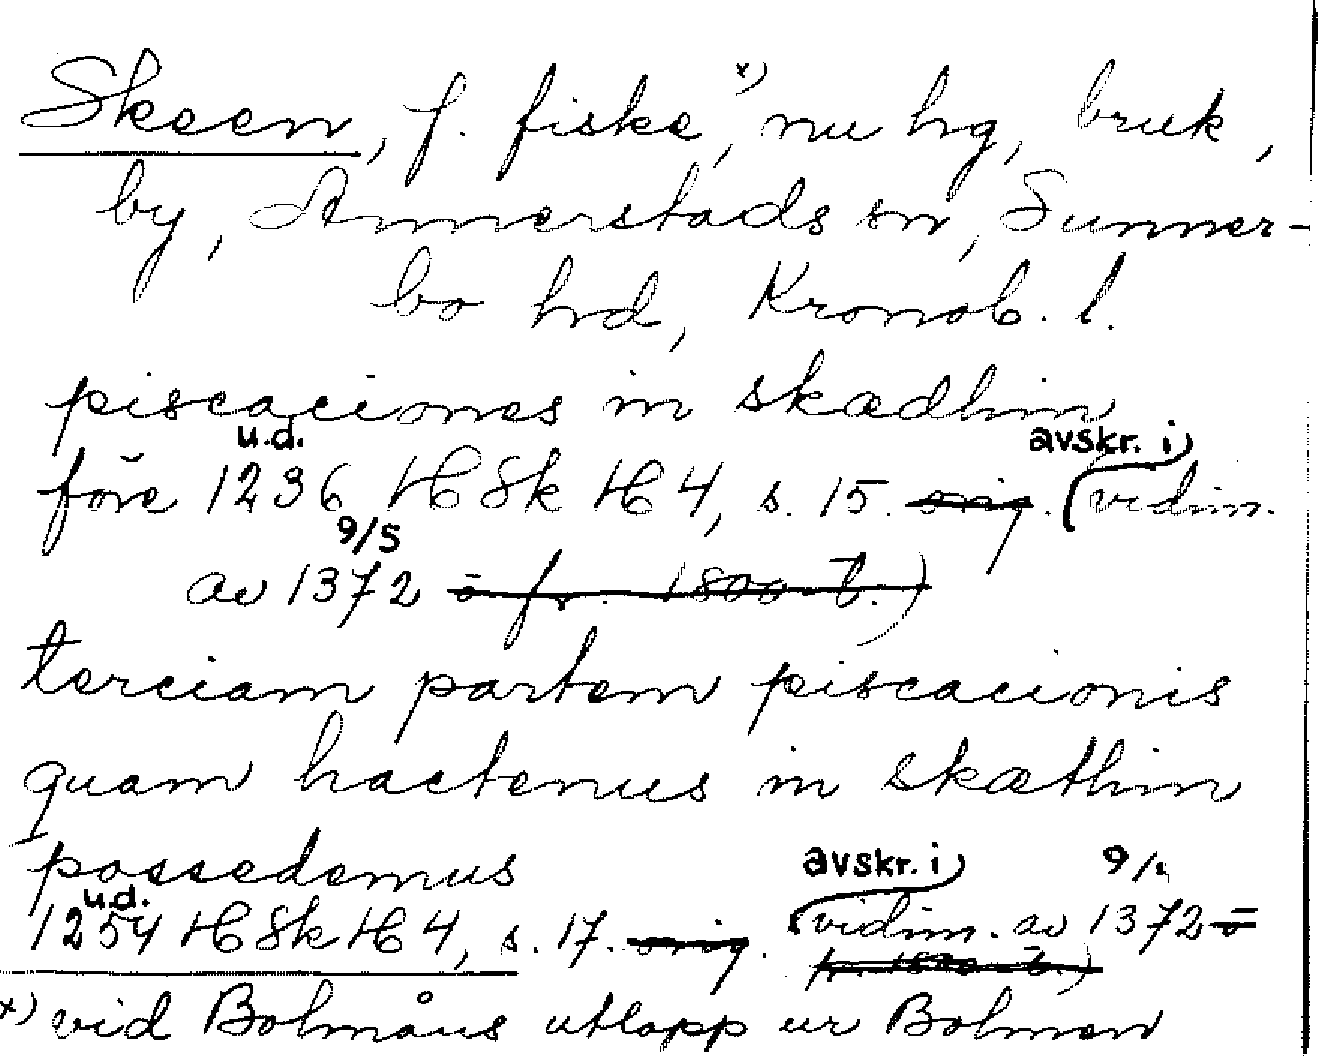 Skeen, f. fiske,x) nu hg, bruk,
by, Annerstads sn, Sunner-
bo hd, Kronob. l.
piscaciones in skædhin
u.d. avskr. i
före 1236 HSH 4, s. 15. orig. (vidim.
9/5
av 1372 ö fr. 1800-t.)
terciam partem piscacionis
quam hactenus in skæthin
possedemus
u.d. avskr. i 9/
1254 HSH 4, s. 17. orig. (vidim. av 1372 ö
fr. 1800-t.)
x) vid Bolmåns utlopp ur Bolmen